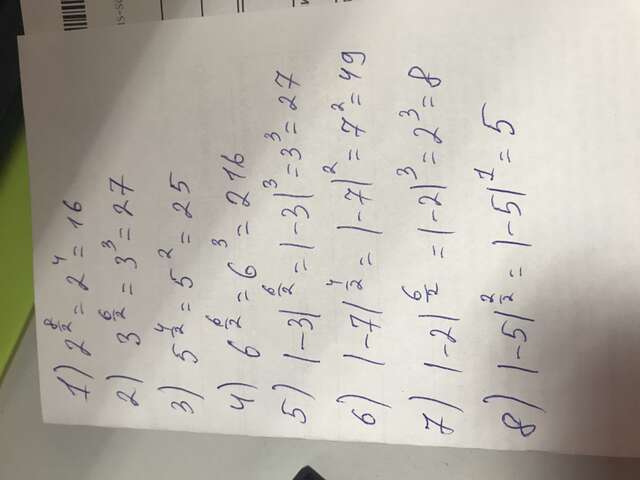 1) 2^(8/2) = 2^4 = 16
2) 3^(6/2) = 3^3 = 27
3) 5^(4/2) = 5^2 = 25
4) 6^(6/2) = 6^3 = 216
5) |-3|^(6/2) = |-3|^3 = 3^3 = 27
6) |-7|^(4/2) = |-7|^2 = 7^2 = 49
7) |-2|^(6/2) = |-2|^3 = 2^3 = 8
8) |-5|^(2/2) = |-5|^1 = 5